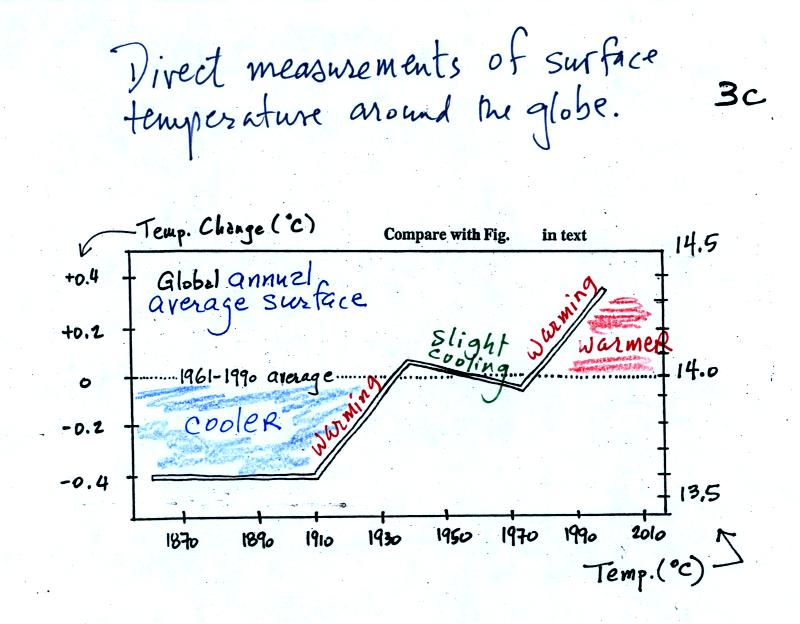 Direct measurements of surface
temperature around the globe.
3c
Temp. Change (°C)
Compare with Fig. in text
14.5
+0.4
Global annual
average surface
warming
+0.2
slight
cooling
warmer
0
1961-1990 average
14.0
-0.2
cooler
warming
-0.4
13.5
1870 1890 1910 1930 1950 1970 1990 2010
Temp. (°C)